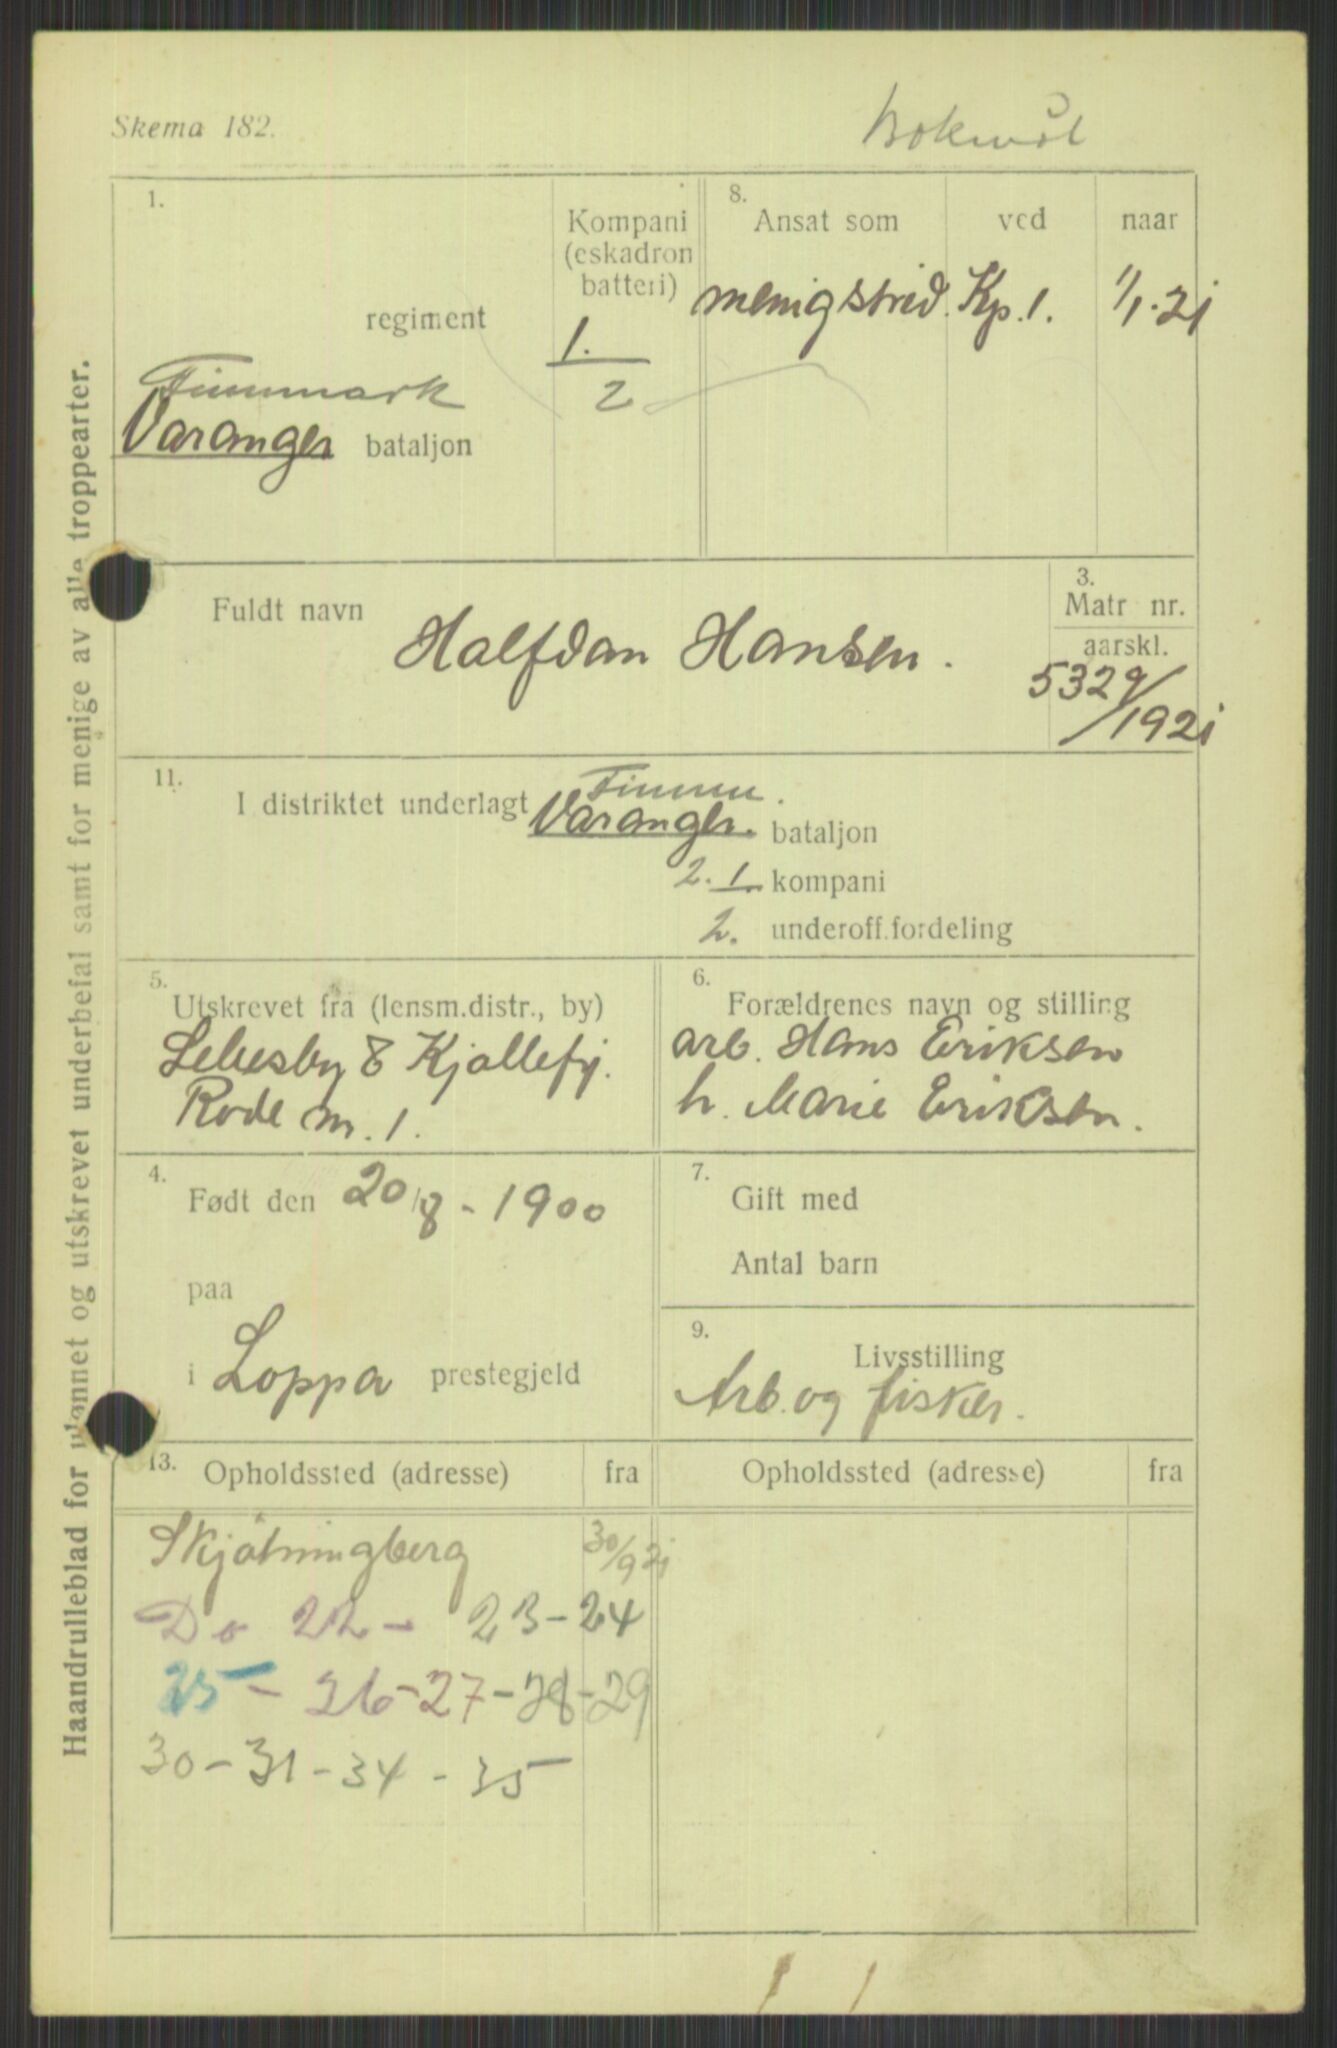 Skema 182.
Bokmål
1.
regiment
Finnmark
Varanger bataljon
Kompani
(eskadron
batteri)
1.
2
8.
Ansat som
ved
naar
menig strid. Kp. 1. 1/1. 21
Fuldt navn
Halfdan Hansen.
3.
Matr nr.
aarskl.
5329/
1921
11.
I distriktet underlagt
Finnm.
Varanger. bataljon
2. 1. kompani
2. underoff.fordeling
5.
Utskrevet fra (lensm.distr., by)
Lebesby & Kjøllefj.
Rode nr. 1.
6.
Forældrenes navn og stilling
arb. Hans Eriksen
h. Marie Eriksen.
4.
Født den 20/8 - 1900
paa
i Loppa prestegjeld
7.
Gift med
Antal barn
9.
Livsstilling
Arb. og fisker.
13.
Opholdssted (adresse)
fra
Opholdssted (adresse)
fra
Skjøtningberg 30/9 21
Do 22 - 23 - 24
25 - 26 - 27 - 28 - 29
30 - 31 - 34 - 35
Haandrulleblad for utlønnet og utskrevet underbefal samt for menige av alle troppearter.